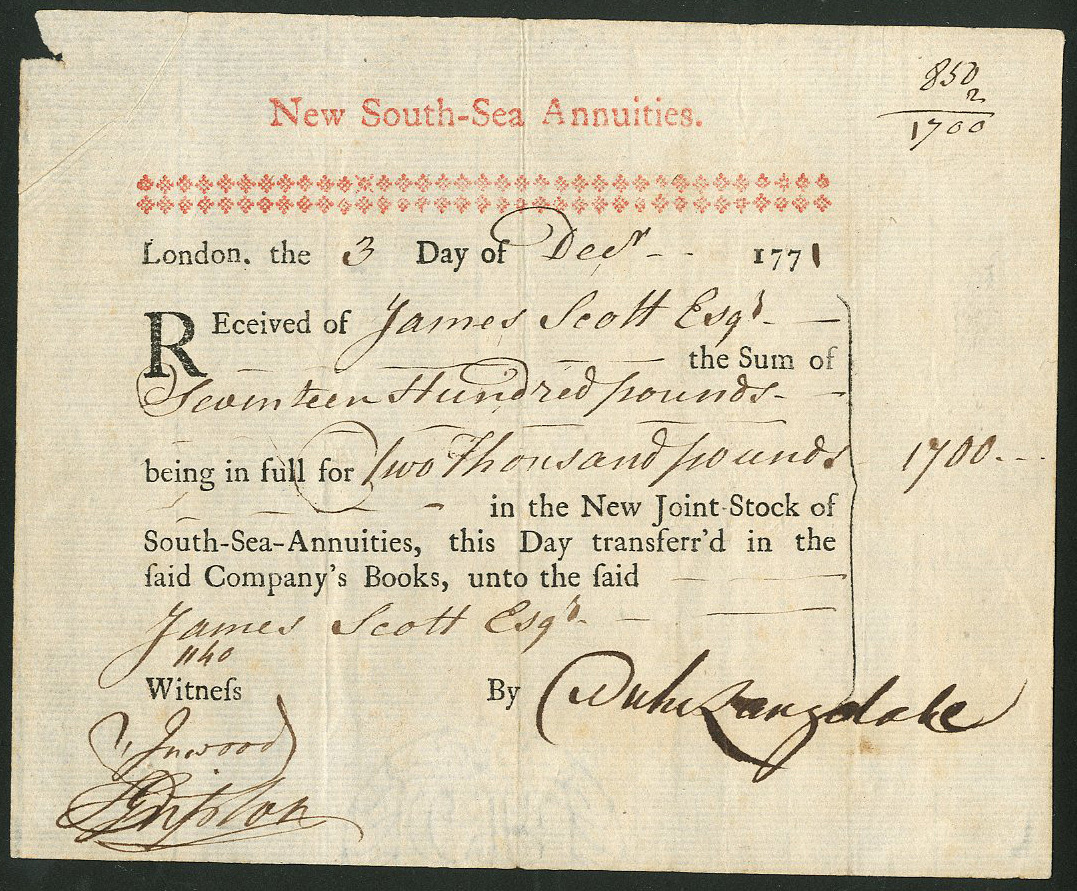 850
2
1700
New South-Sea Annuities.
London, the 3 Day of Decr 1771
REceived of James Scott Esqr
the Sum of
Seventeen Hundred pounds
being in full for Two Thousand pounds 1700
in the New Joint-Stock of
South-Sea-Annuities, this Day transferr'd in the
ſaid Company's Books, unto the ſaid
James Scott Esqr
1140
Witneſs By Langdale
Inwood